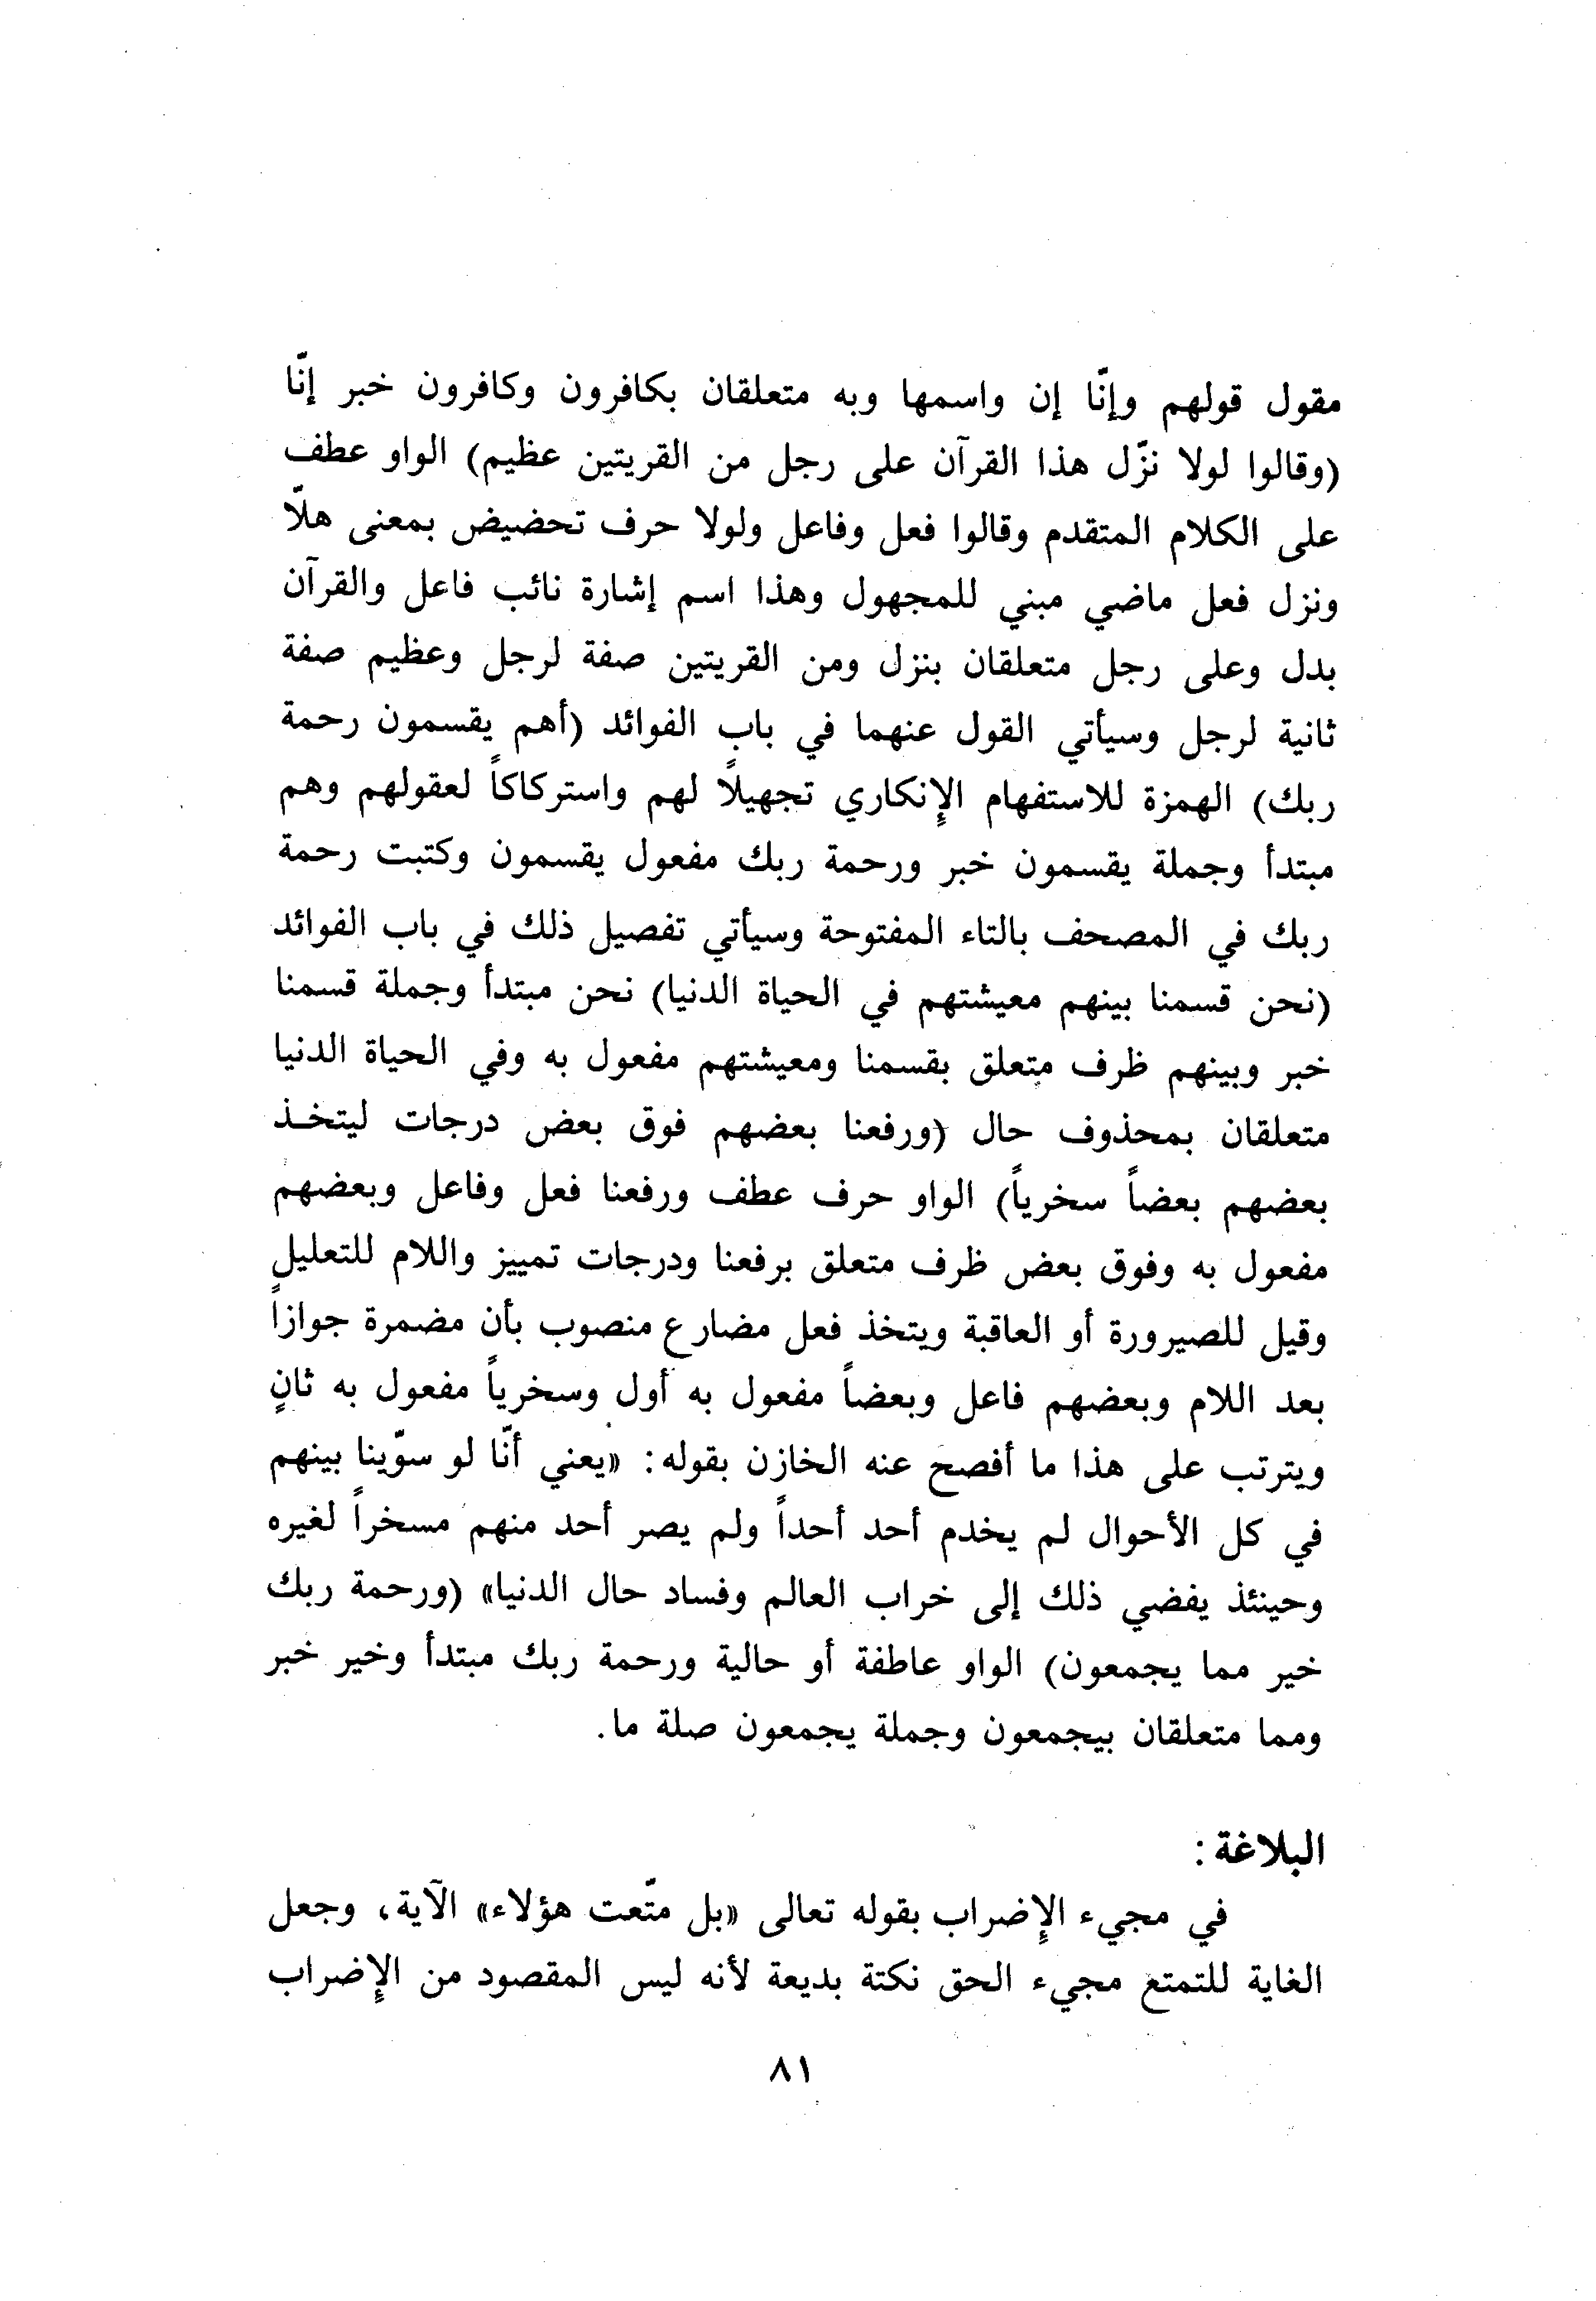 مقول قولهم وإنّا إن واسمها وبه متعلقان بكافرون وكافرون خبر إنّا
(وقالوا لولا نزّل هذا القرآن على رجل من القريتين عظيم) الواو عطف
على الكلام المتقدم وقالوا فعل وفاعل ولولا حرف تحضيض بمعنى هلّا
ونزل فعل ماضي مبني للمجهول وهذا اسم إشارة نائب فاعل والقرآن
بدل وعلى رجل متعلقان بنزل ومن القريتين صفة لرجل وعظيم صفة
ثانية لرجل وسيأتي القول عنهما في باب الفوائد (أهم يقسمون رحمة
ربك) الهمزة للاستفهام الإنكاري تجهيلًا لهم واستركاكاً لعقولهم وهم
مبتدأ وجملة يقسمون خبر ورحمة ربك مفعول يقسمون وكتبت رحمة
ربك في المصحف بالتاء المفتوحة وسيأتي تفصيل ذلك في باب الفوائد
(نحن قسمنا بينهم معيشتهم في الحياة الدنيا) نحن مبتدأ وجملة قسمنا
خبر وبينهم ظرف متعلق بقسمنا ومعيشتهم مفعول به وفي الحياة الدنيا
متعلقان بمحذوف حال (ورفعنا بعضهم فوق بعض درجات ليتخذ
بعضهم بعضاً سخرياً) الواو حرف عطف ورفعنا فعل وفاعل وبعضهم
مفعول به وفوق بعض ظرف متعلق برفعنا ودرجات تمييز واللام للتعليل
وقيل للصيرورة أو العاقبة ويتخذ فعل مضارع منصوب بأن مضمرة جوازاً
بعد اللام وبعضهم فاعل وبعضاً مفعول به أول وسخرياً مفعول به ثانٍ
ويترتب على هذا ما أفصح عنه الخازن بقوله: «يعني أنّا لو سوّينا بينهم
في كل الأحوال لم يخدم أحد أحداً ولم يصر أحد منهم مسخراً لغيره
وحينئذ يفضي ذلك إلى خراب العالم وفساد حال الدنيا» (ورحمة ربك
خير مما يجمعون) الواو عاطفة أو حالية ورحمة ربك مبتدأ وخير خبر
ومما متعلقان بيجمعون وجملة يجمعون صلة ما.
البلاغة:
في مجيء الإضراب بقوله تعالى «بل متّعت هؤلاء» الآية، وجعل
الغاية للتمتع مجيء الحق نكتة بديعة لأنه ليس المقصود من الإضراب
٨١